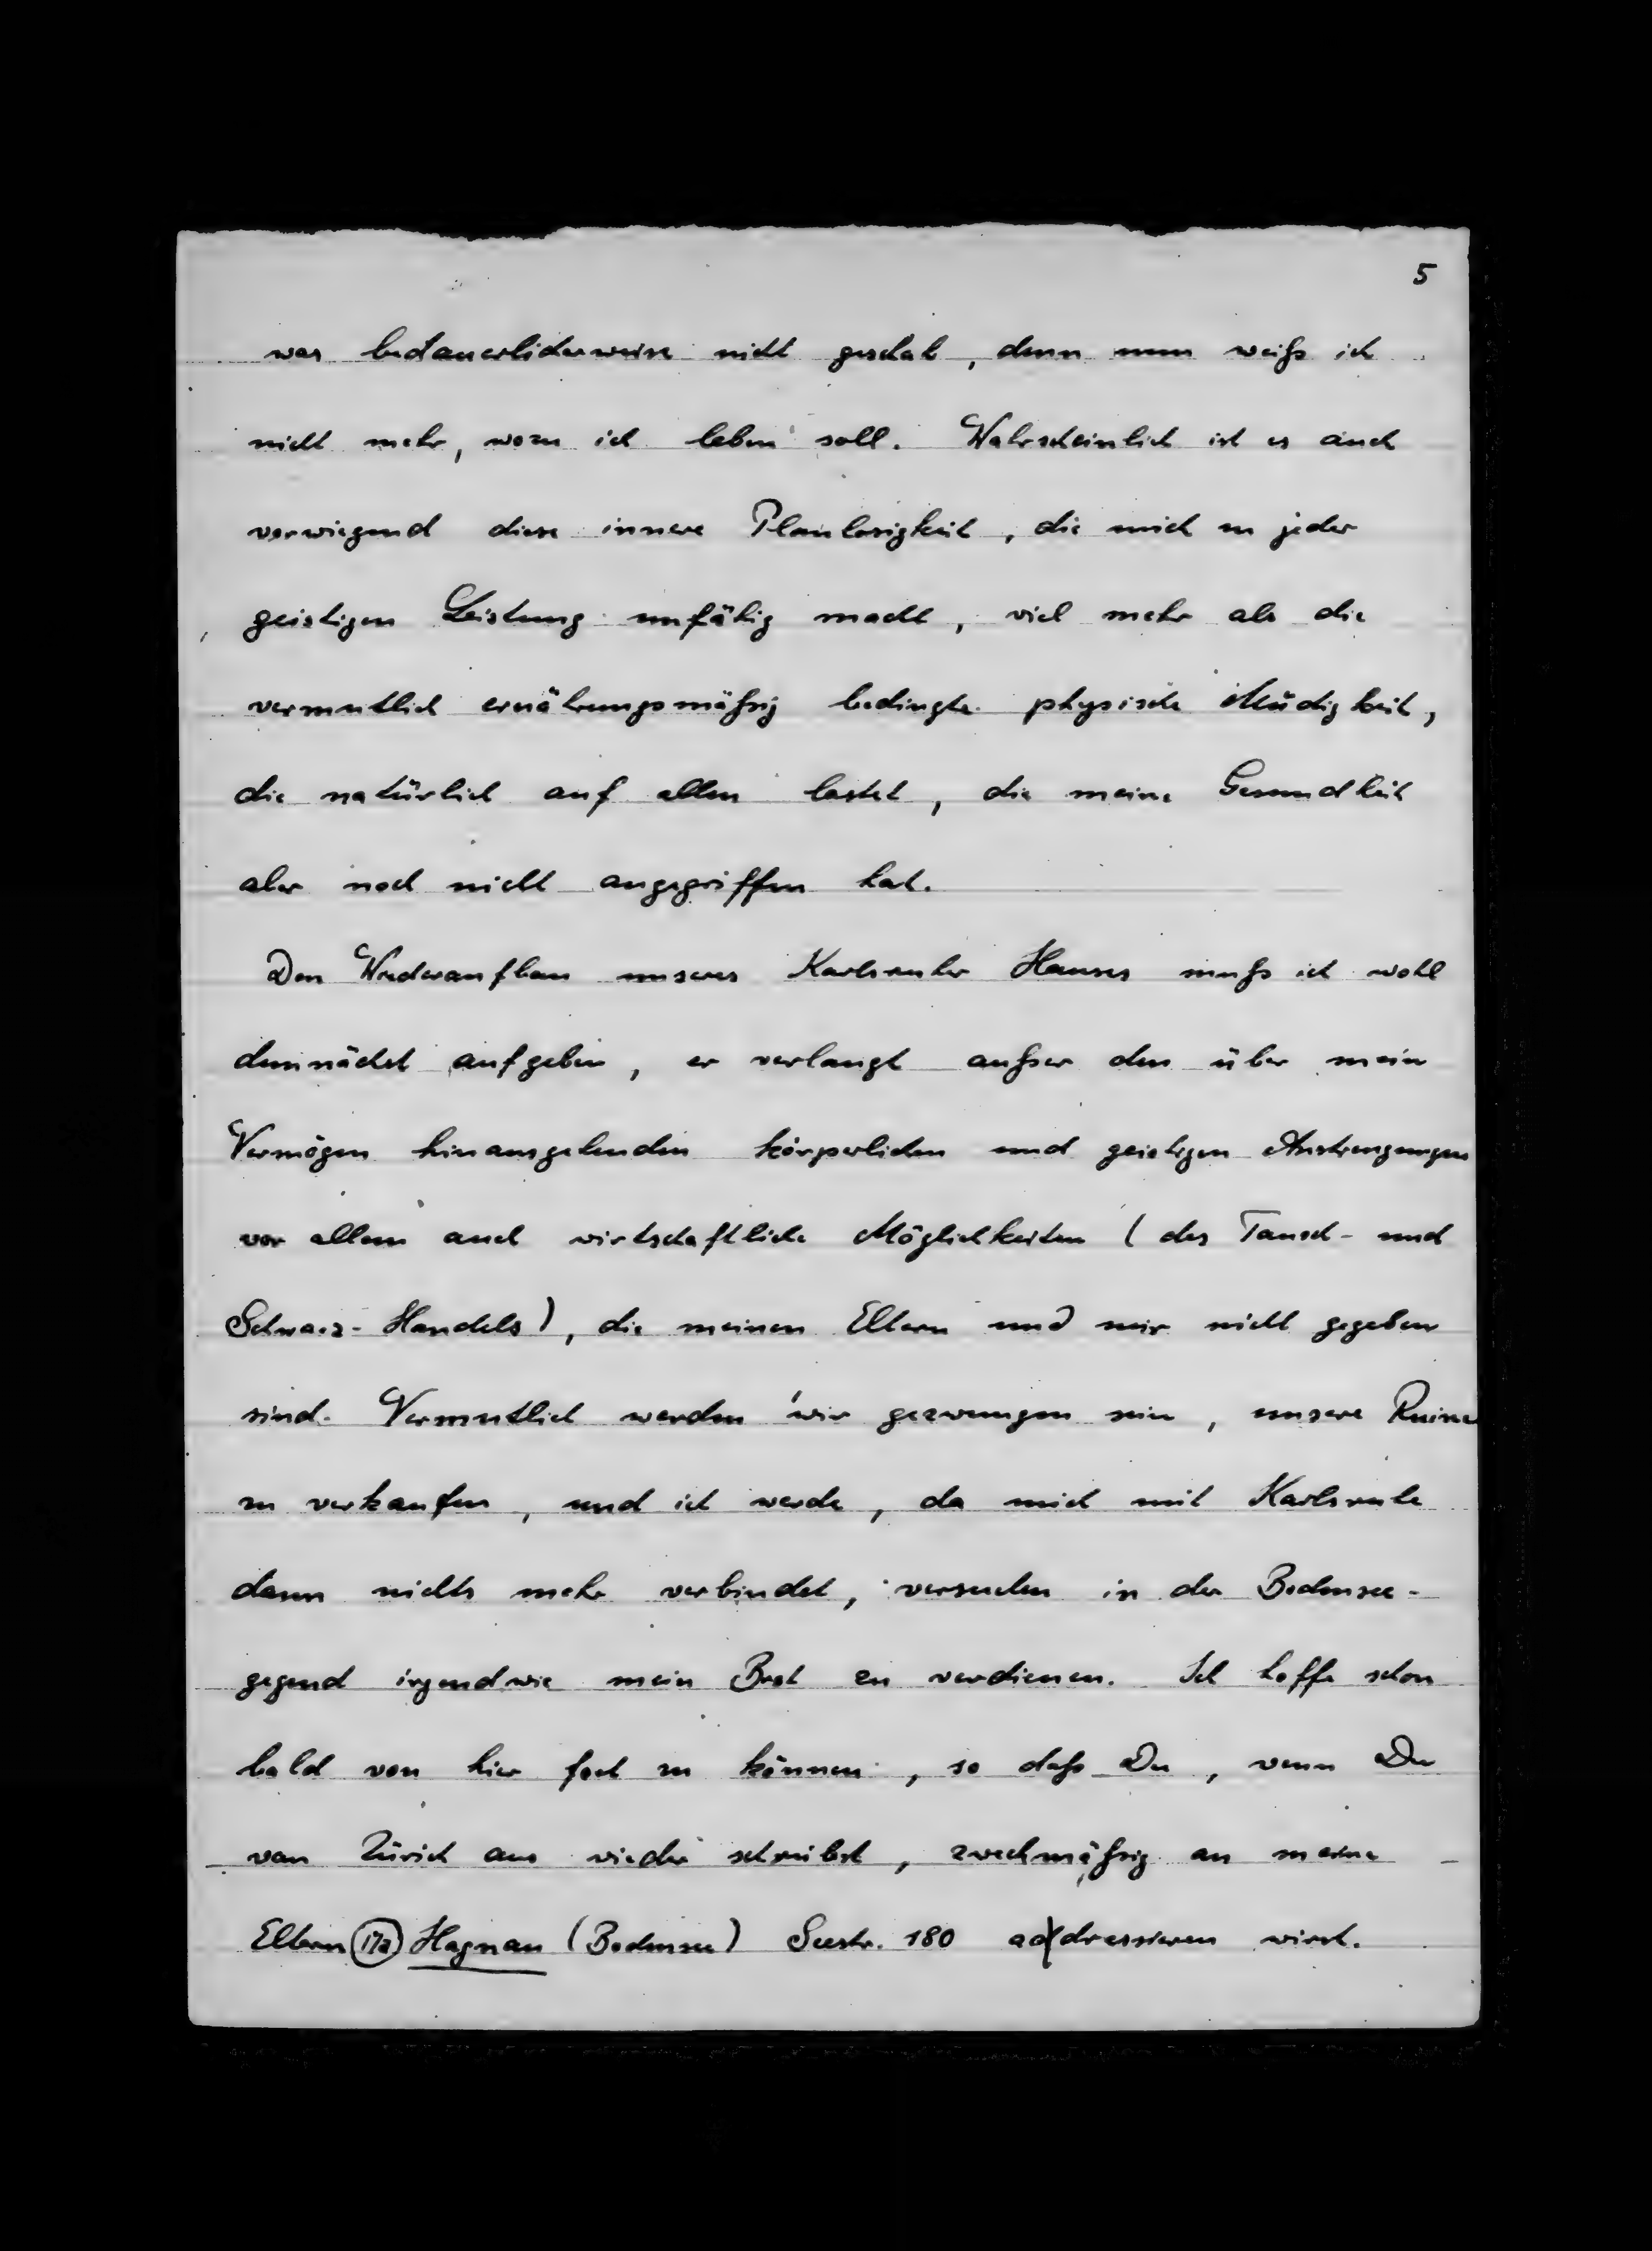 5
was bedauerlicherweise nicht geschah, denn nun weiß ich
nicht mehr, wozu ich leben soll. Wahrscheinlich ist es auch
vorwiegend diese innere Planlosigkeit, die mich zu jeder
geistigen Leistung unfähig macht, viel mehr als die
vermutlich ernährungsmäßig bedingte physische Müdigkeit,
die natürlich auf allen lastet, die meine Gesundheit
aber noch nicht angegriffen hat.
Den Wiederaufbau unseres Karlsruher Hauses muß ich wohl
demnächst aufgeben, er verlangt außer den über mein
Vermögen hinausgehenden körperlichen und geistigen Anstrengungen
vor allem auch wirtschaftliche Möglichkeiten (des Tausch- und
Schwarz-Handels), die meinen Eltern und mir nicht gegeben
sind. Vermutlich werden wir gezwungen sein, unsere Ruine
zu verkaufen, und ich werde, da mich mit Karlsruhe
dann nichts mehr verbindet, versuchen in der Bodensee-
gegend irgendwie mein Brot zu verdienen. Ich hoffe schon
bald von hier fort zu können, so daß Du, wenn Du
von Zürich aus wieder schreibst, zweckmäßig an meine
Eltern (17a) Hagnau (Bodensee) Seestr. 180 addressieren wirst.